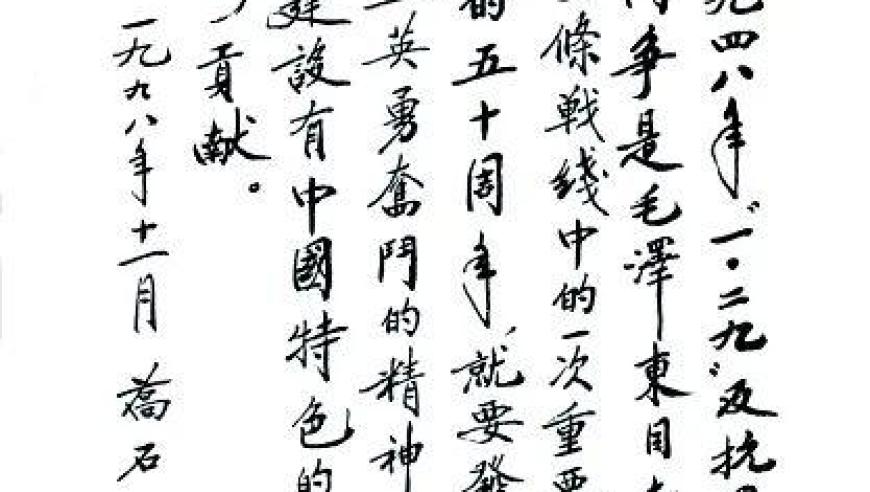 九四八年“一·二九”反抗
争是毛澤東目
條戰綫中的一次重要
的五十周年,就要發
英勇奮鬥的精神
建設有中國特色的
貢獻。
一九九八年十一月 喬石